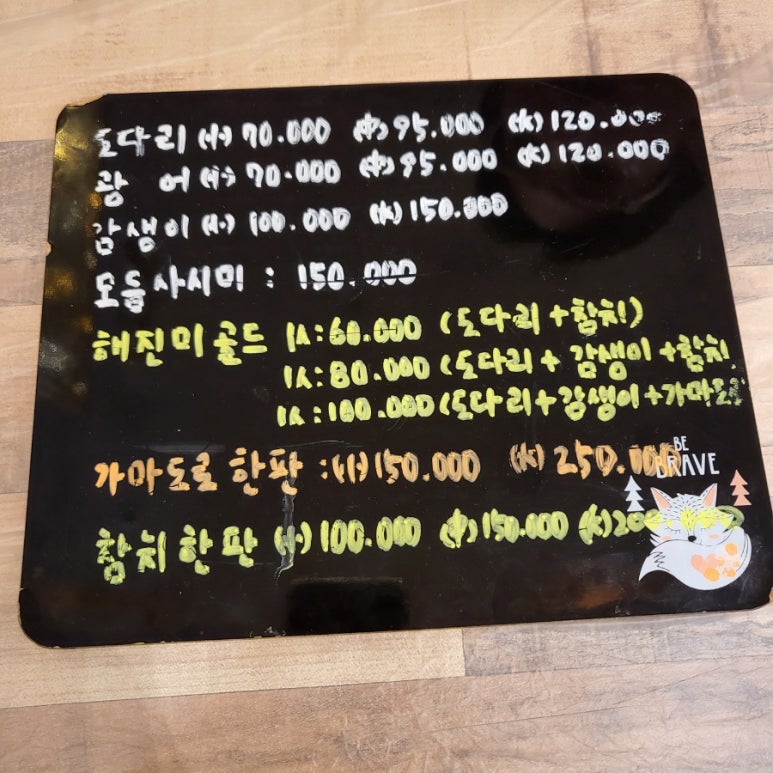 도다리 (小) 70.000 (中) 95.000 (大) 120.000
광 어 (小) 70.000 (中) 95.000 (大) 120.000
감생이 (小) 100.000 (大) 150.000
모듬사시미 : 150.000
해진미골드 1人:60.000 (도다리+참치)
1人:80.000 (도다리+감생이+참치
1人:100.000 (도다리+감생이+가마도로
가마도로한판 :(小)150.000 (大) 250.000
BE
BRAVE
참치한판 (小) 100.000 (中) 150.000 (大) 200.000